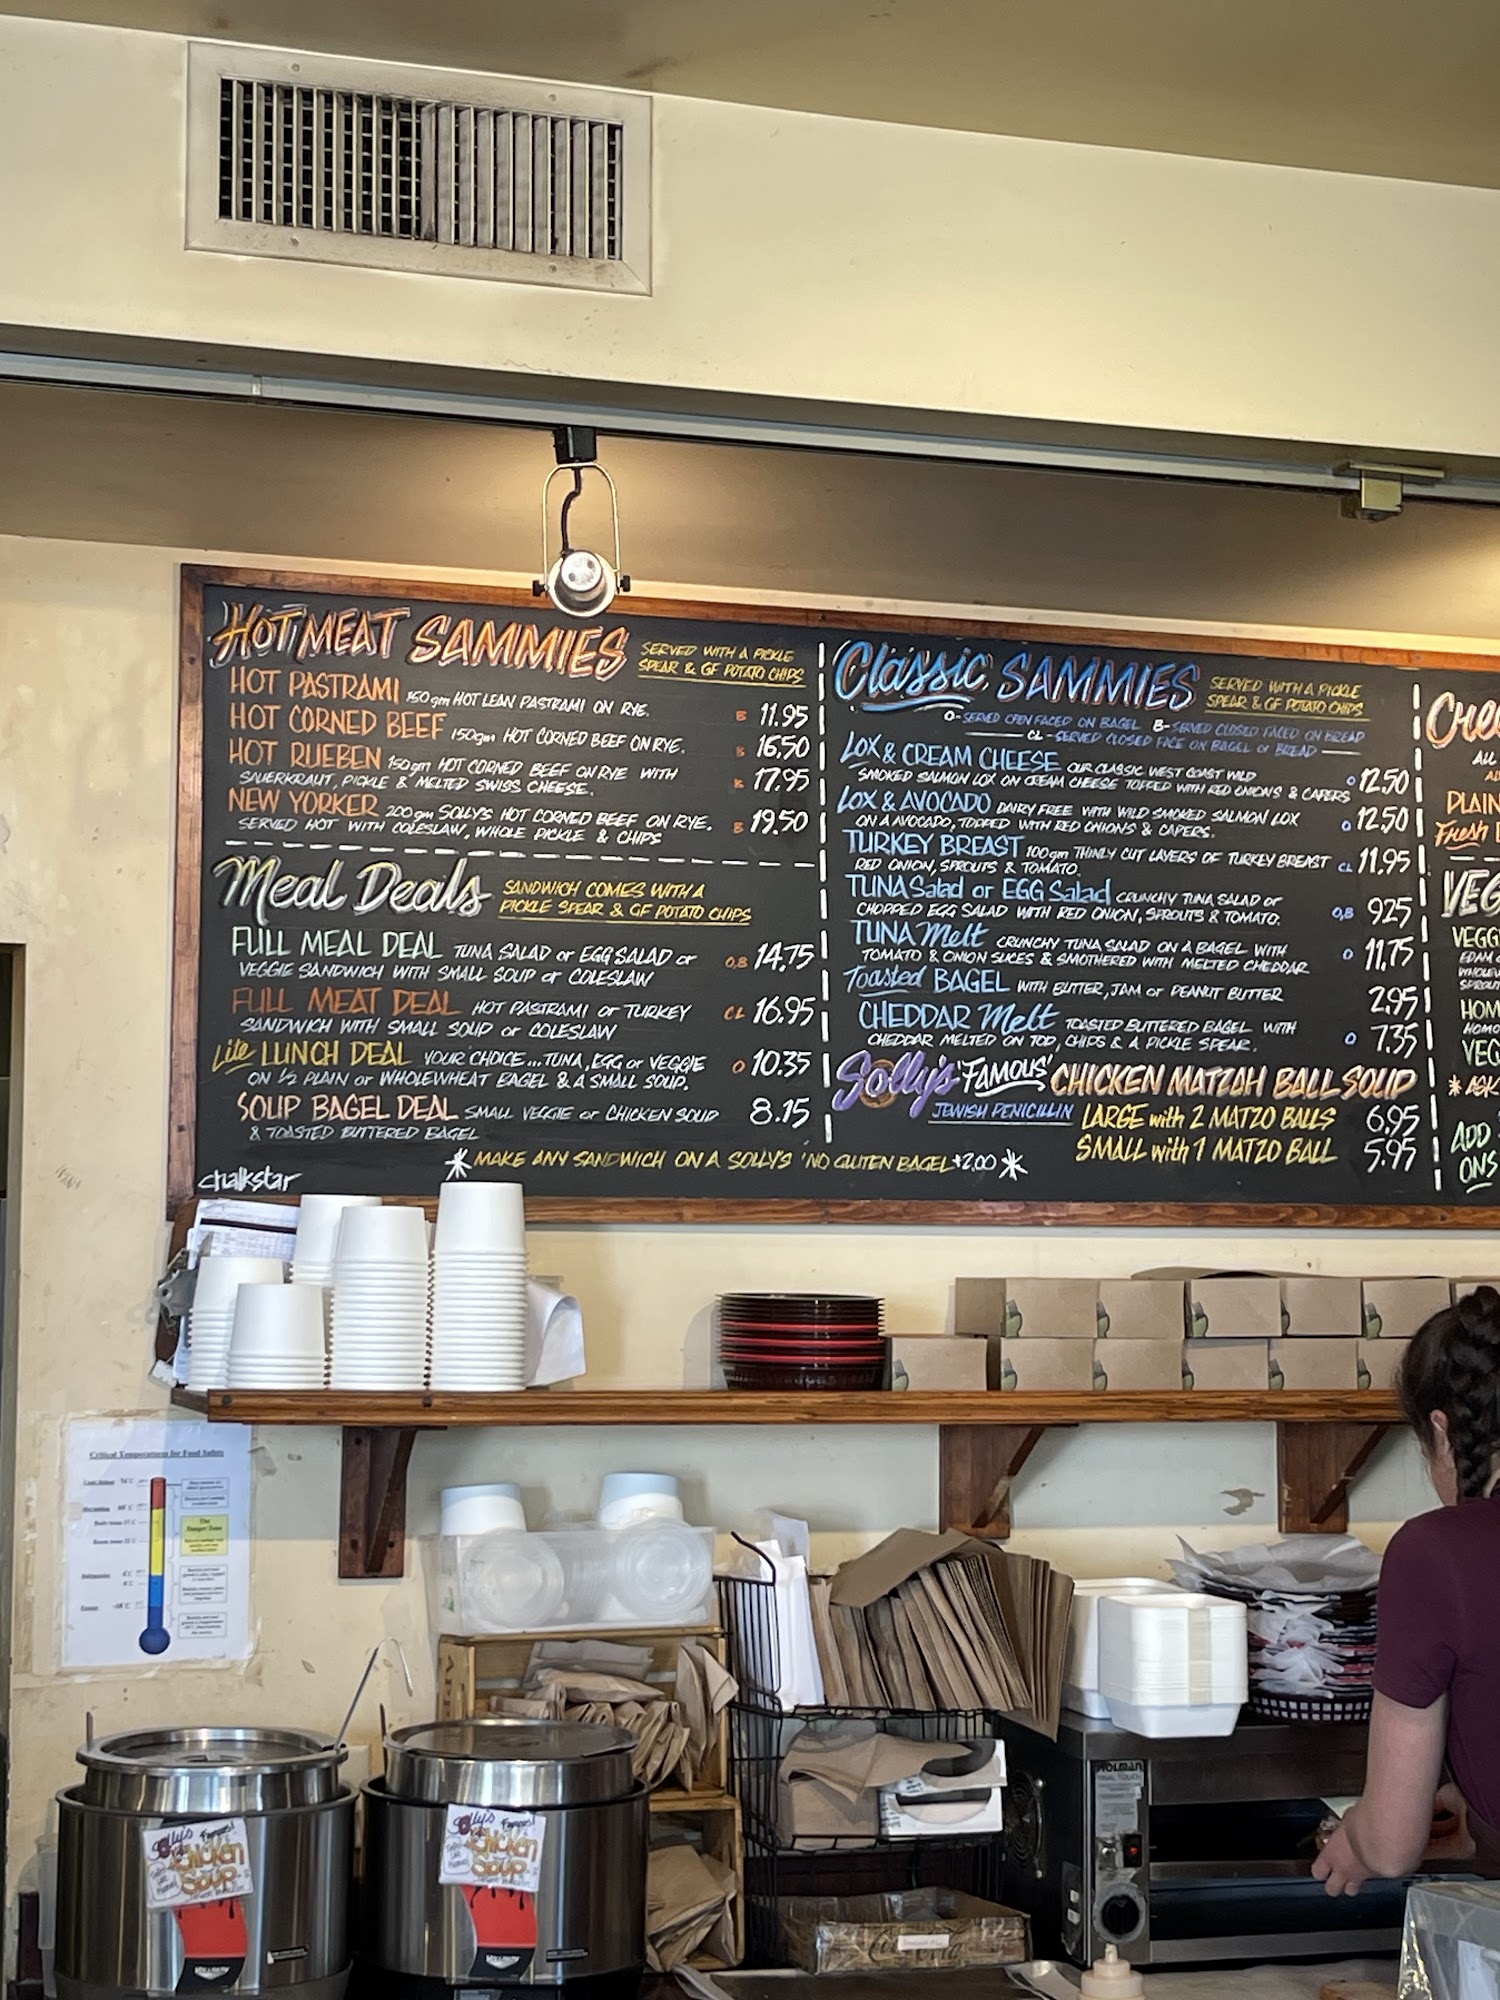 HOT MEAT SAMMIES
SERVED WITH A PICKLE
SPEAR & GF POTATO CHIPS
HOT PASTRAMI 150gm HOT LEAN PASTRAMI ON RYE. B 11.95
HOT CORNED BEEF 150gm HOT CORNED BEEF ON RYE. B 16.50
HOT RUEBEN 150gm HOT CORNED BEEF ON RYE WITH
SAUERKRAUT, PICKLE & MELTED SWISS CHEESE. B 17.95
NEW YORKER 200gm SOLLY'S HOT CORNED BEEF ON RYE.
SERVED HOT WITH COLESLAW, WHOLE PICKLE & CHIPS B 19.50
Meal Deals
SANDWICH COMES WITH A
PICKLE SPEAR & GF POTATO CHIPS
FULL MEAL DEAL TUNA SALAD or EGG SALAD or
VEGGIE SANDWICH WITH SMALL SOUP or COLESLAW O,B 14.75
FULL MEAT DEAL HOT PASTRAMI or TURKEY
SANDWICH WITH SMALL SOUP or COLESLAW CL 16.95
Lite LUNCH DEAL YOUR CHOICE...TUNA, EGG or VEGGIE
ON ½ PLAIN or WHOLEWHEAT BAGEL & A SMALL SOUP. O 10.35
SOUP BAGEL DEAL SMALL VEGGIE or CHICKEN SOUP
& TOASTED BUTTERED BAGEL 8.15
chalkstar
* MAKE ANY SANDWICH ON A SOLLY'S 'NO GLUTEN BAGEL +2.00 *
Classic SAMMIES
SERVED WITH A PICKLE
SPEAR & GF POTATO CHIPS
O-SERVED OPEN FACED ON BAGEL B-SERVED CLOSED FACED ON BREAD
CL - SERVED CLOSED FACE ON BAGEL or BREAD
LOX & CREAM CHEESE OUR CLASSIC WEST COAST WILD
SMOKED SALMON LOX ON CREAM CHEESE TOPPED WITH RED ONIONS & CAPERS O 12.50
LOX & AVOCADO DAIRY FREE WITH WILD SMOKED SALMON LOX
ON A AVOCADO, TOPPED WITH RED ONIONS & CAPERS. O 12.50
TURKEY BREAST 100gm THINLY CUT LAYERS OF TURKEY BREAST
RED ONION, SPROUTS & TOMATO. CL 11.95
TUNA Salad or EGG Salad CRUNCHY TUNA SALAD OR
CHOPPED EGG SALAD WITH RED ONION, SPROUTS & TOMATO. O,B 9.25
TUNA Melt CRUNCHY TUNA SALAD ON A BAGEL WITH
TOMATO & ONION SLICES & SMOTHERED WITH MELTED CHEDDAR O 11.75
Toasted BAGEL WITH BUTTER, JAM or PEANUT BUTTER 2.95
CHEDDAR Melt TOASTED BUTTERED BAGEL WITH
CHEDDAR MELTED ON TOP, CHIPS & A PICKLE SPEAR. O 7.35
Solly's 'FAMOUS' CHICKEN MATZAH BALL SOUP
JEWISH PENICILLIN LARGE with 2 MATZO BALLS 6.95
SMALL with 1 MATZO BALL 5.95
ALL
PLAIN
Fresh
VEGG
EDAM
HOM
VEG
ADD
ONS
Critical Temperatures for Food Safety
The
Danger Zone
Solly's Famous!
Chicken
Soup
Solly's Famous!
Chicken
Soup
VOLLRATH
VOLLRATH
HOLMAN